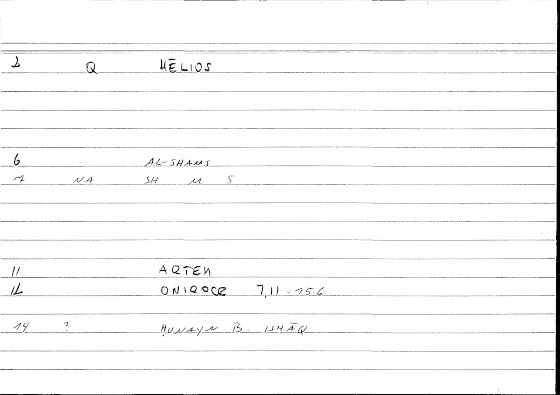 1 Q HĒLIOS
6 AL-SHAMS
7 NA SH M S
11 ARTEM
12 ONIROCR 7,11 - 15.6
14 ? ḤUNAYN B. ISḤĀQ